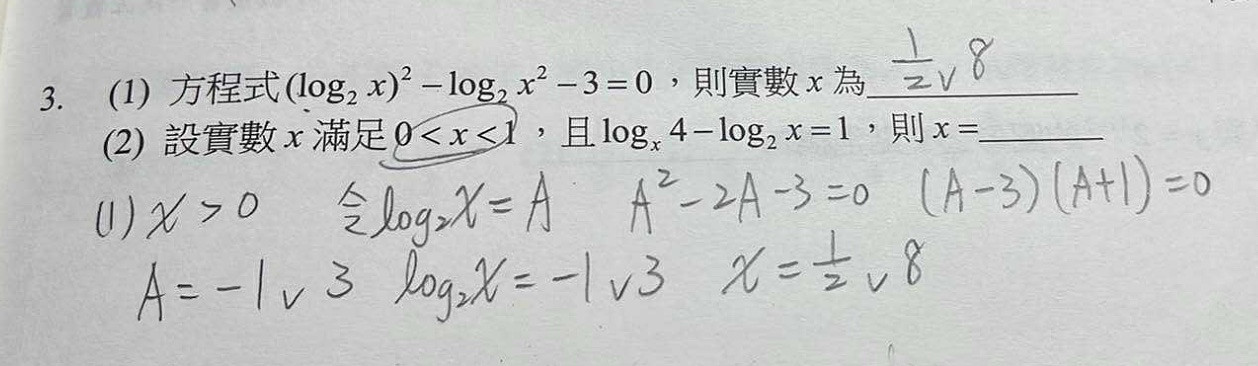 3. (1) 方程式(log₂ x)² − log₂ x² − 3 = 0，則實數 x 為 1/2 ∨ 8
(2) 設實數 x 滿足 0 < x < 1，且 logₓ 4 − log₂ x = 1，則 x = ________
(1) x > 0 令 log₂x = A A² − 2A − 3 = 0 (A − 3)(A + 1) = 0
A = −1 ∨ 3 log₂x = −1 ∨ 3 x = 1/2 ∨ 8